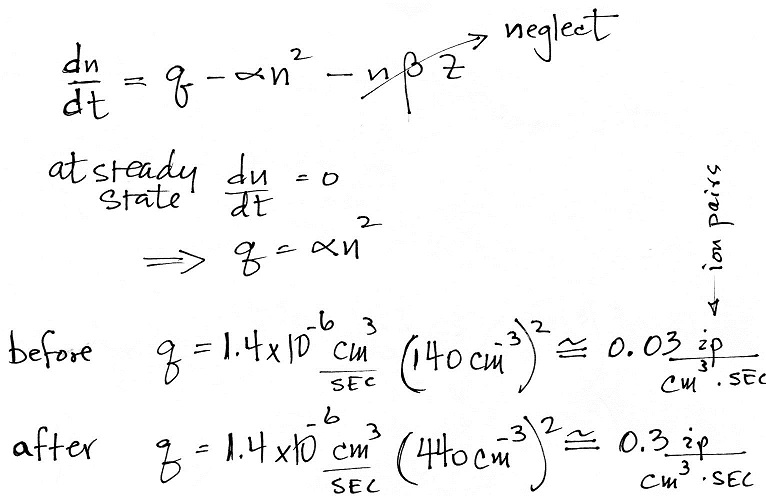 dn/dt = q - αn² - nβZ → neglect
at steady state dn/dt = 0
⇒ q = αn²
before q = 1.4 x 10⁻⁶ cm³/SEC (140 cm⁻³)² ≅ 0.03 ip/cm³·SEC ← ion pairs
after q = 1.4 x 10⁻⁶ cm³/SEC (440 cm⁻³)² ≅ 0.3 ip/cm³·SEC